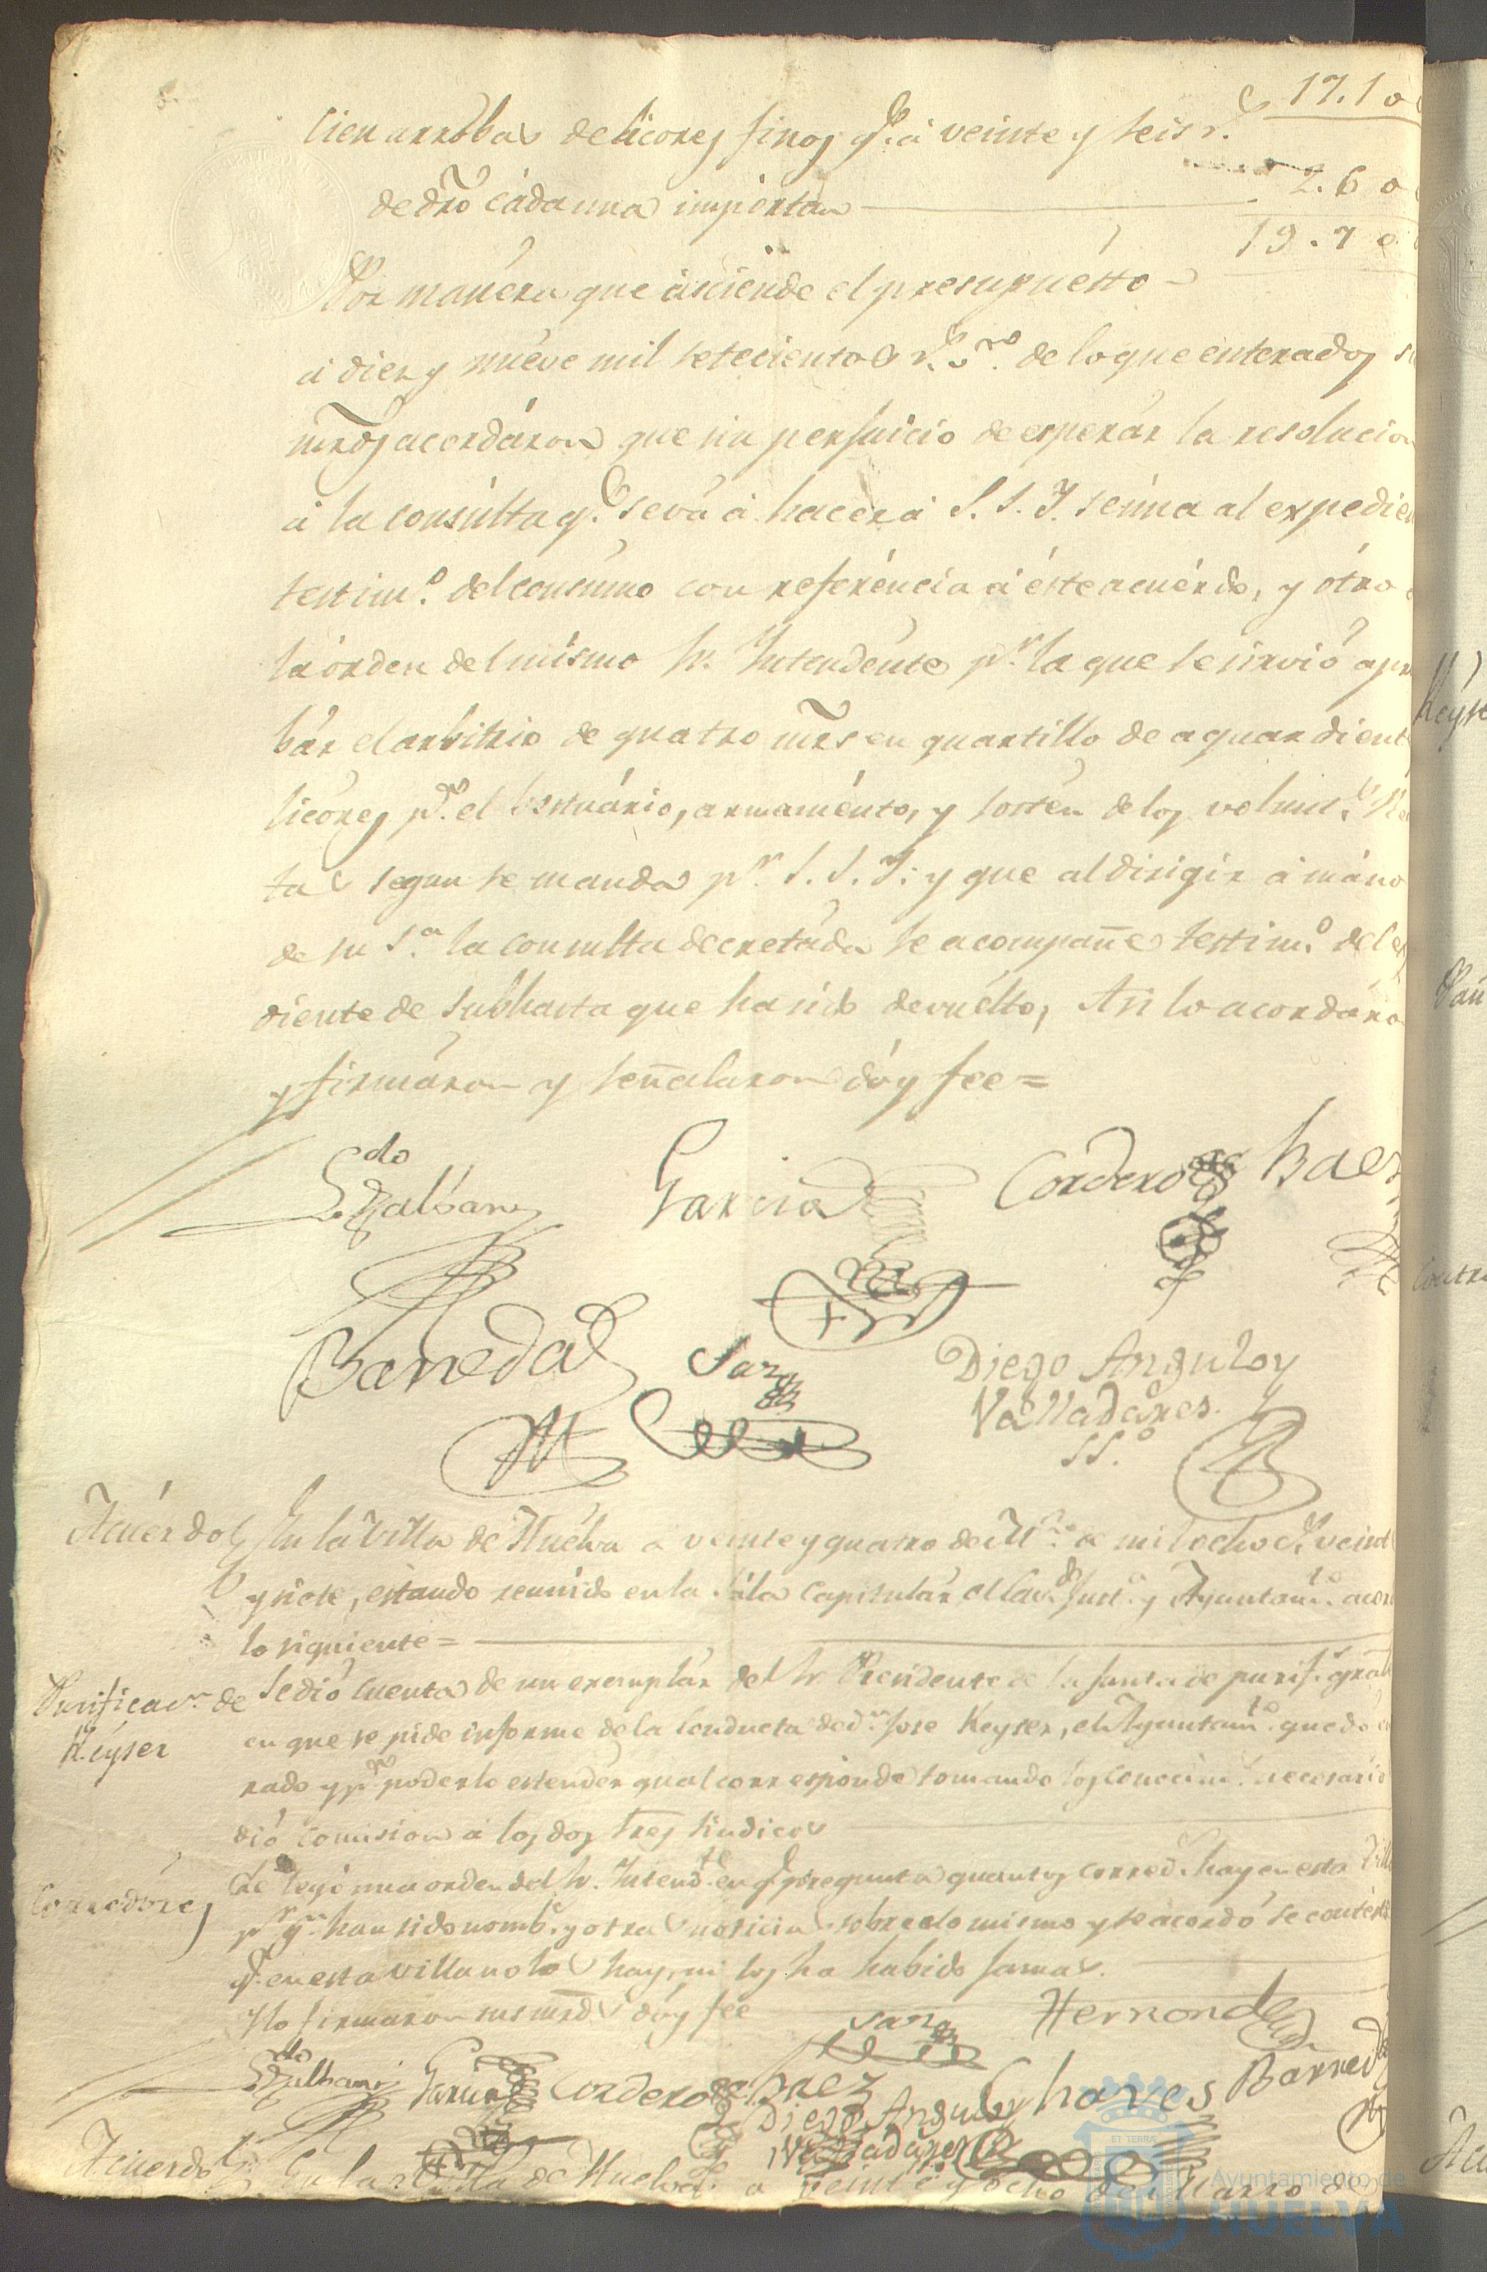 17.10
Cien arrobas de licores finos q.e á veinte y seis r.s
de dro cada una importan — 2.60
19.70
Por manera que asciende el presupuesto
á diez y nueve mil setecientos r.s v.on de lo que enterados
mrds acordáron que sin perjuicio de esperár la resolucion
á la consúlta q.e se vá á hacer á S. S. Y. se úna al expedien
testim.o del consúmo con referéncia á éste acuérdo, y ótro
la órden del mismo Sr. Yntendénte p.r la que se sirvió apro
bár el arbitrio de quatro mrs en quartillo de aguardient
licóres p.a el vestuário, armaménto, y sostén de los volunt.s
tas segun se manda p.r S. S. Y. y que al dirigir á máno
de su S.a la consulta decretáda se acompañe testim.o del
diente de subhasta que ha sido devuélto, Asi lo acordáro
y firmáron y señalaron dóy fee =
L.do Galban
Garcia
Cordero
Baez
Barreda
Sanz
Diego Angulo y
Valladáres.
SS.o
Acuérdo En la Villa de Huelva a veinte y quatro de M.zo de mil ocho c.s veint
y siete, estando reunido en la Sala Capitulár el Cav.do Just.a y Ayuntam.to acor
lo siguiente =
Purificac.on de Se dió cuenta de un exemplár del Sr. Presidente de la Junta de purif.n gral
Keyser en que se pide informe de la conducta de d.n Jose Keyser, el Ayuntam.to quedó
rado y p.a poderlo estendér qual corresponde tomando los conocim.s necesario
dió comision á los dos Sres Sindicos
Corredóres Se leyó una orden del Sr. Intend.te en q.e pregunta quantos corred.s hay en esta Villa
p.r q.n han sido nomb.s y otras noticias sobre lo mismo y se acordó se contést
q.e en esta villa no los hay, ni los ha habido jamas.
Y lo firmaron sus mrds dóy fee
Sanz
Hernandez
L.do Galban
Garcia
Cordero
Baez
Chaves
Barreda
Diego Angulo y
Valladáres
Acuerdo En la Villa de Huelva a veinte y ocho de Marzo de
Ayuntamiento de
HUELVA